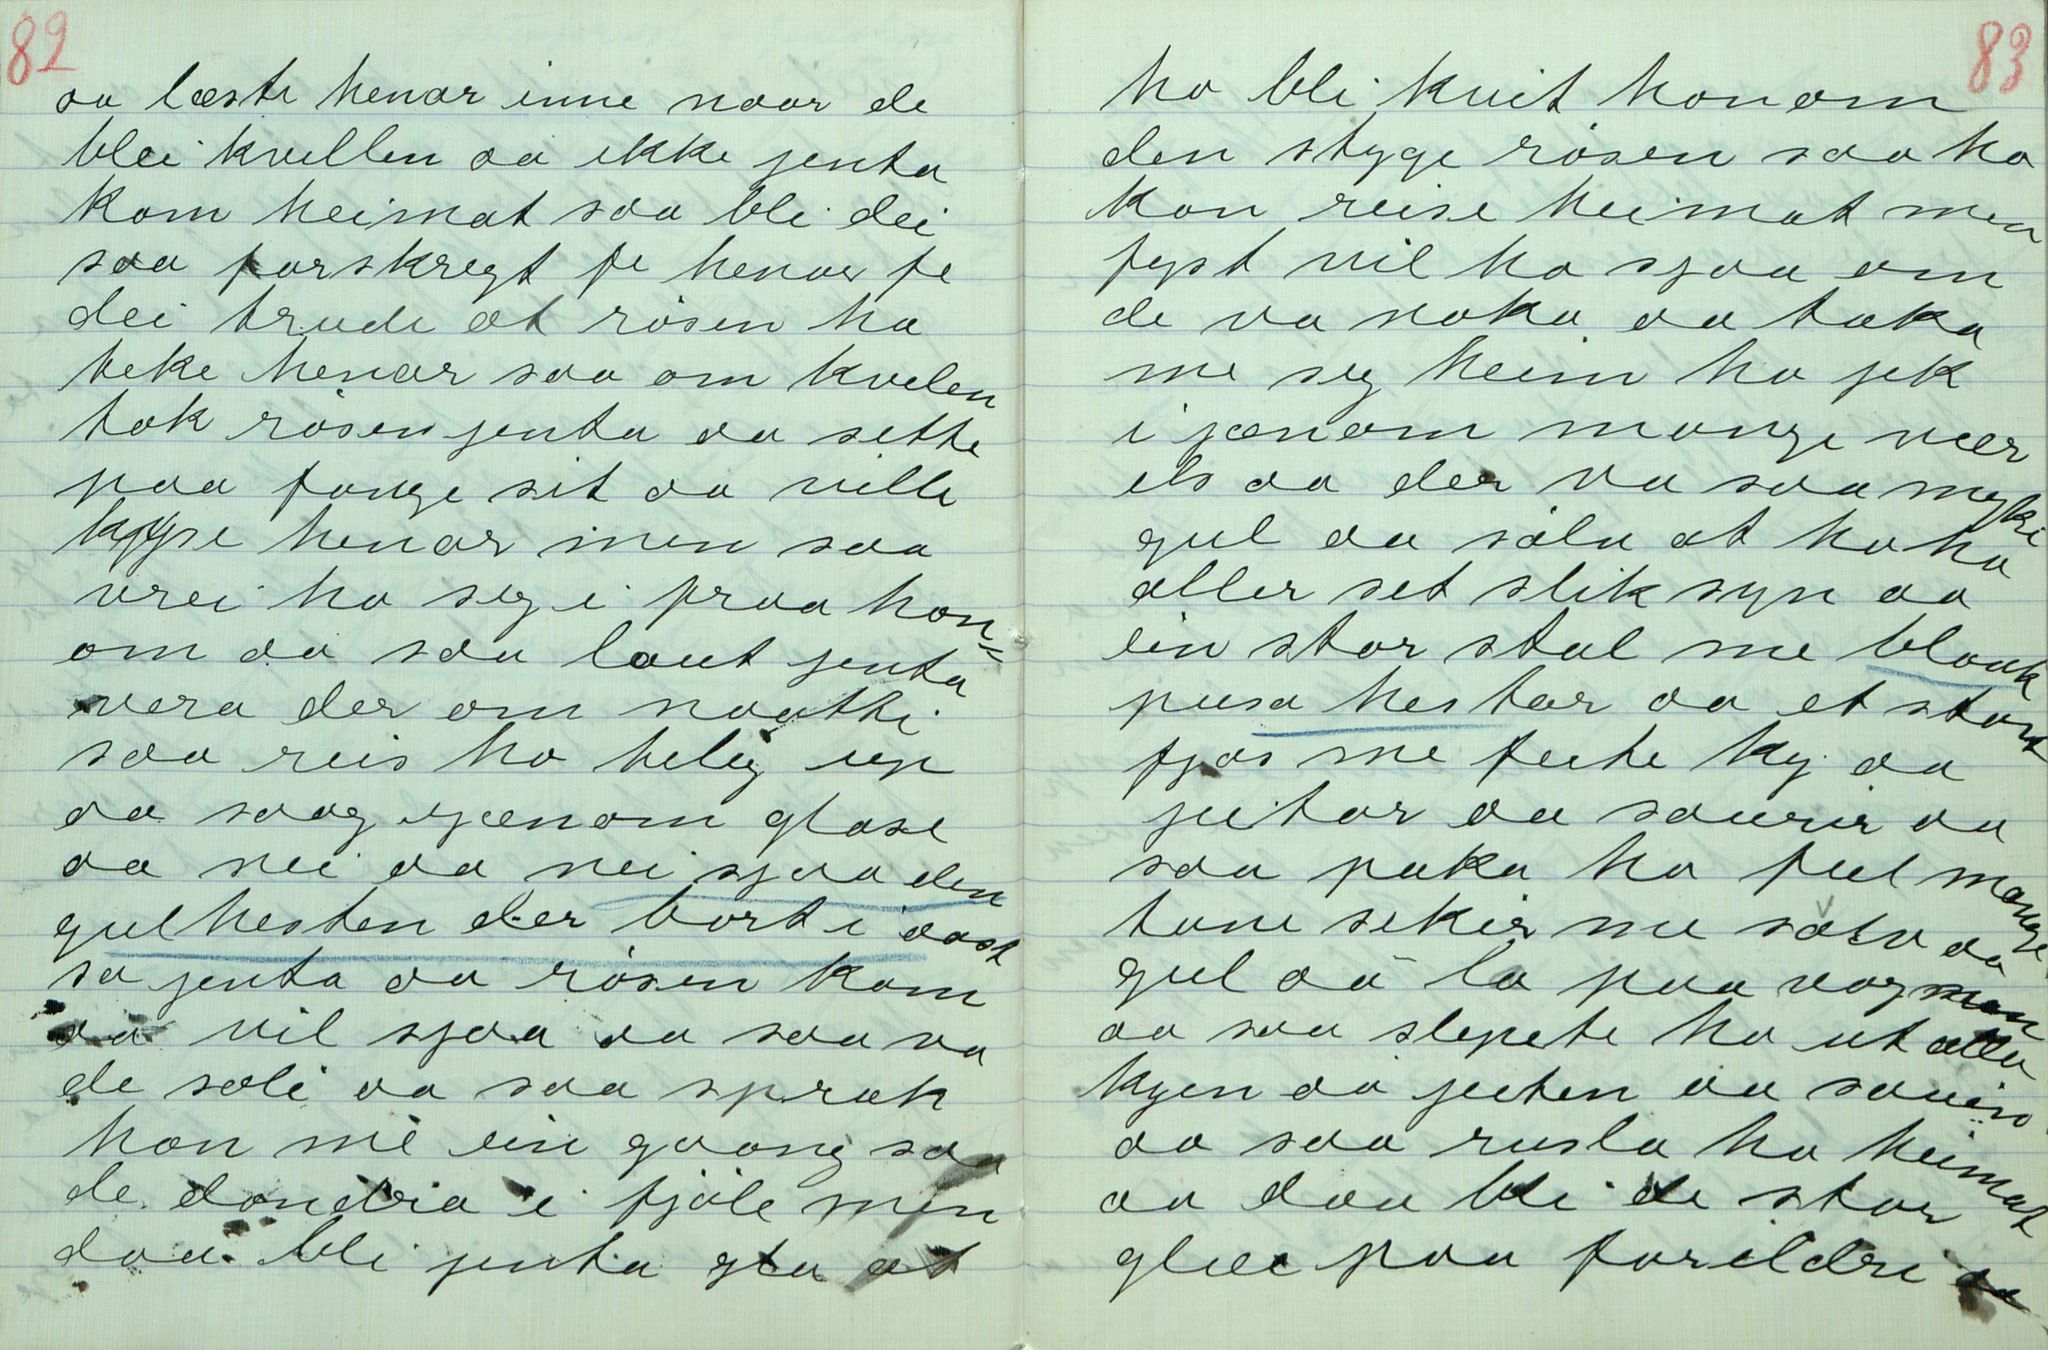 82
aa læste henar inne naar de
blei kvellen aa ikke jenta
kom heimat saa bli dei
saa forskregt fe henar fe
dei trude at risen ha
teke henar saa om kvelen
tok risen jenta aa sette
paa fange sit aa ville
kysse henar men saa
vrei ho seg i fraa hon=
om aa saa laut jenta
vera der om naatti
saa reis ho helig up
aa saag igænom glase
aa nei aa nei sjaa den
gulhesten der bort i aast
sa jenta aa risen kom
aa vil sjaa aa saa va
de soli aa saa sprak
han me ein gaang saa
de dondra i fjøle men
daa bli jenta gla at
83
ho bli kvit honom
den styge risen saa ho
kan reise heimat men
fyst vil ho sjaa om
de va noka aa taka
me seg heim ho jek
i jænom mange vær
els aa der va saa myki
gul aa sølv at ho ha
aller set slik syn aa
ein stor stal me blank
pusa hestar aa et stort
fjøs me feite ky aa
jeitar aa sauir aa
saa paka ho ful mange
tone sekir me sølv aa
gul aa la paa vognen
aa saa slepete ho ut alla
kyen aa jeiten aa sauin
aa saa rusla ho heimat
aa daa bli de stor
glæe paa forildre aa